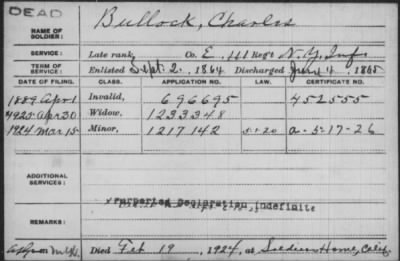 DEAD
NAME OF SOLDIER: Bullock, Charles
SERVICE: Late rank, Co. E, 111 Reg't N.Y. Inf.
Enlisted Sept. 2, 1864 Discharged June 4, 1865
DATE OF FILING. CLASS. APPLICATION NO. LAW. CERTIFICATE NO.
1889 Apr 1 Invalid, 696695 452555
1925 Apr 30 Widow, 1233348
1924 Mar 15 Minor, 1217142 5-1-20 a-5-17-26
ADDITIONAL SERVICES:
x Purported Declaration, indefinite
REMARKS:
Died Feb 19, 1924, at Soldiers Home, Calif.